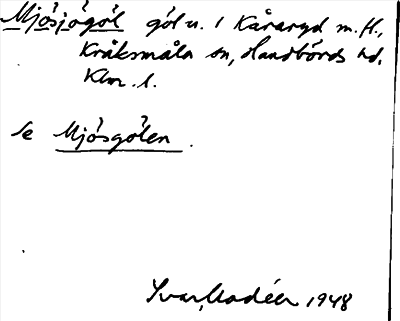 Mjösjögöl göl u. / Kåraryd m. fl.,
Kråksmåla sn, Handbörds hd,
Klm. l.
Se Mjösgölen.
Ivar Modéer 1948